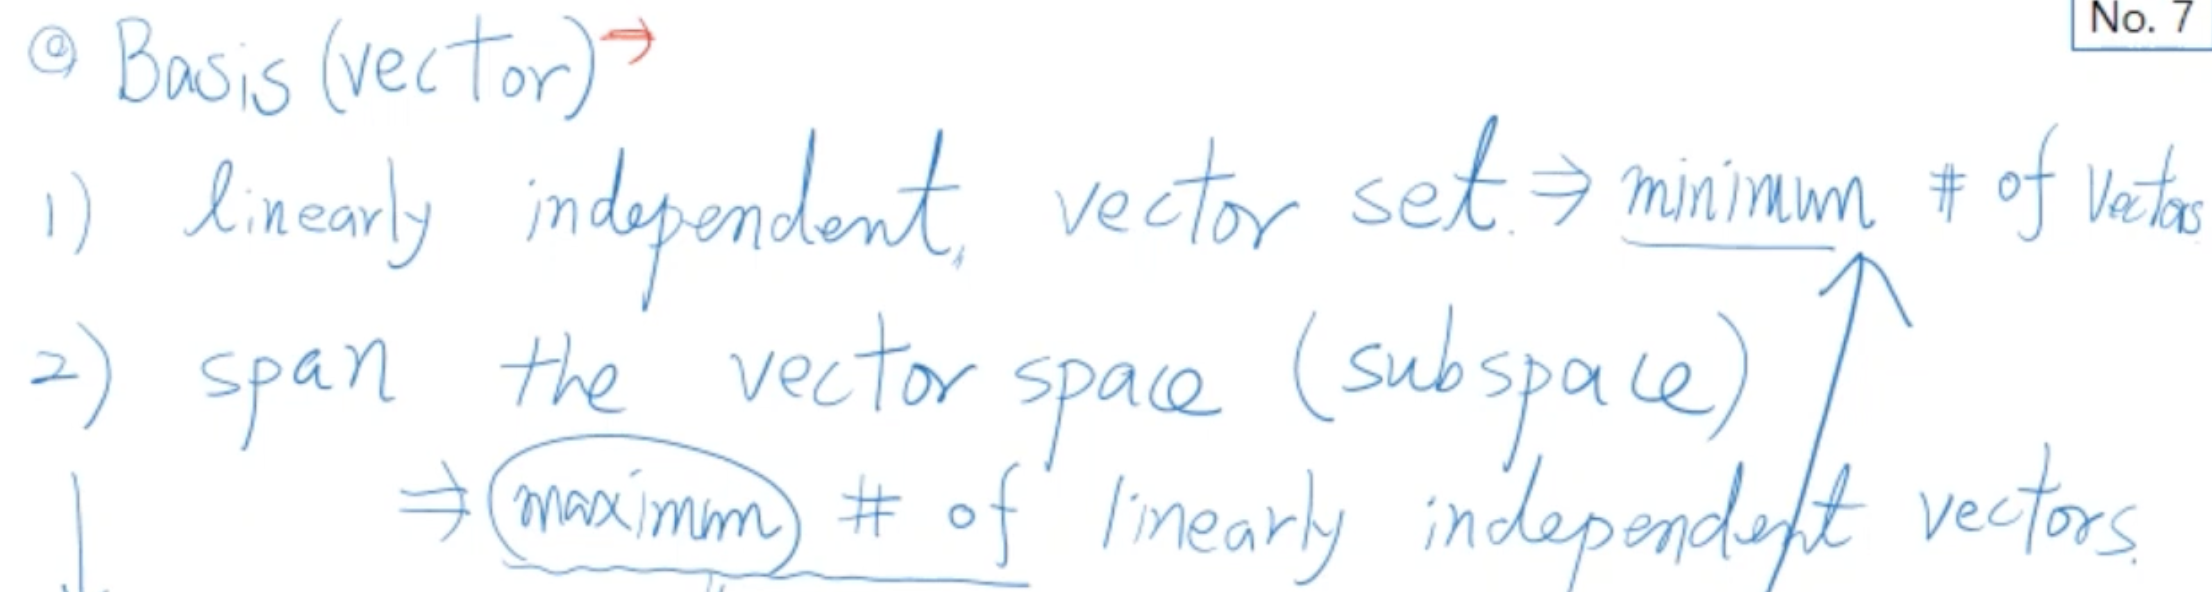 No. 7
@ Basis (vector) →
1) linearly independent, vector set. ⇒ minimum # of vectors
2) span the vector space (subspace)
⇒ maximum # of linearly independent vectors.